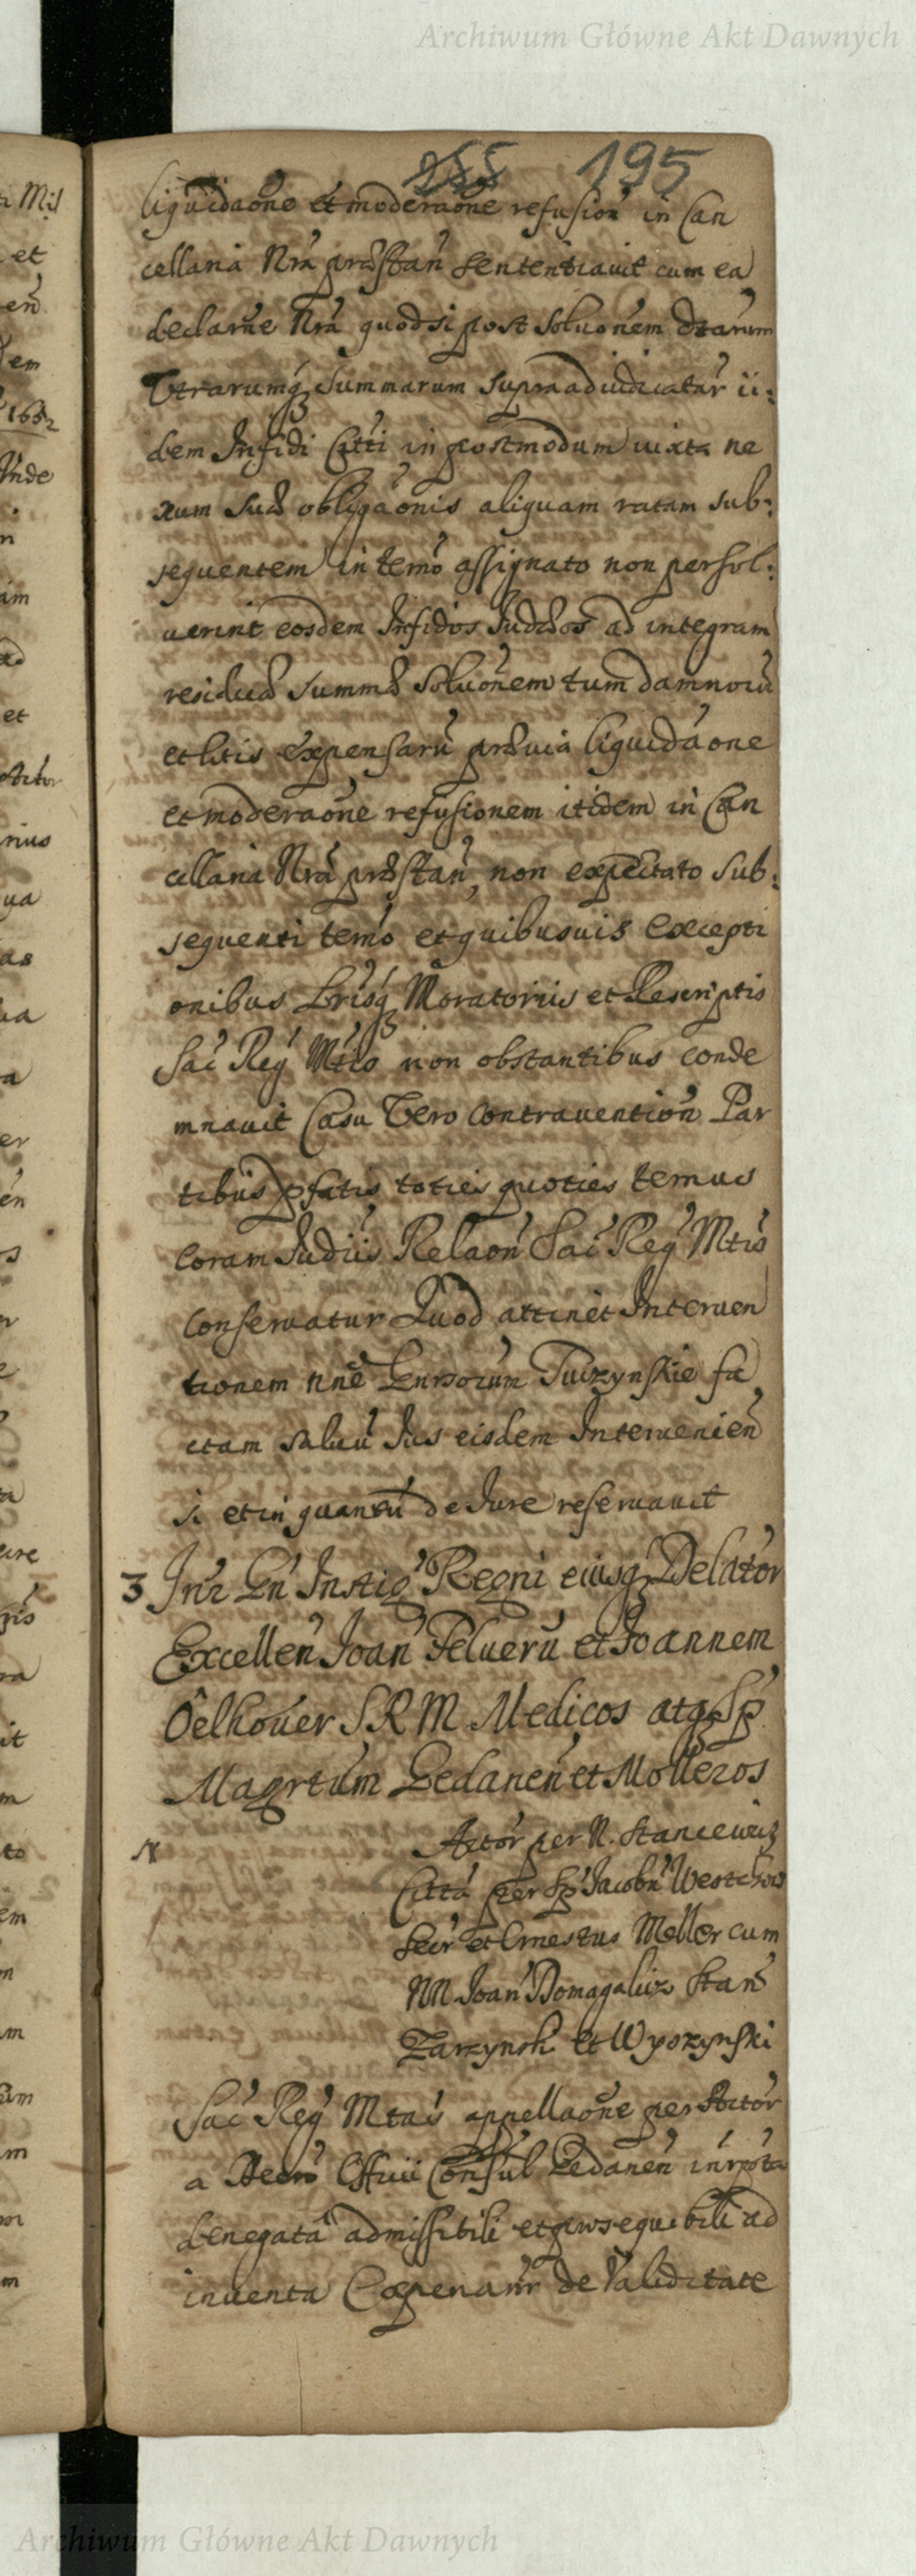 Archiwum Główne Akt Dawnych
255 195
liquidaõne et moderaõne refusioñ in Can
cellaria Nrã præstañ sententiavit cum ea
declarñe Nrã quodsi post soluoñem dtarum
Utrarumq summarum supra adiudicatar̃ ii:
dem Infidi Citti in postmodum iuxta ne
xum suæ obligãonis aliquam ratam sub:
sequentem in temõ assignato non persol:
uerint eosdem Infidos Judæos ad integram
residuæ summæ soluõnem tum damnorũ
et litis expensarũ præuia liquidãone
et moderaõne refusionem itidem in Can
cellaria Nrã præstañ, non expectato sub:
sequenti temõ et quibusuis excepti
onibus Lrisq Moratoriis et Rescriptis
Sac̃ Reg̃ Mtis non obstantibus conde
mnauit Casu Vero contrauentioñ Par
tibus pfatis toties quoties temus
coram Judiis Relaoñ Sac̃ Reg̃ Mtis
conseruatur Quod attinet Interuen
tionem nñe Gnrsorum Tuczynskie fa
ctam saluũ Jus eisdem Interuenieñ
si et in quantũ de Jure reseruauit
3 Intr Gñ Instig̃ Regni eiusq Delator
Excelleñ Joañ Peluerũ et Joannem
Oelhouer S R M Medicos atq Sp
Magrtum Gedaneñ et Molleros
N Actor̃ per N. Stancewicz
Citta per Sp̃ Jacobũ
Secr̃ et Ernestus Meller cum
NN Joañ Domagalicz Stañ
Zarzynsk et Wyszynski
Sac̃ Reg̃ Mtais appellaoñe per Actor̃
a Decrõ Offcii Consul Gedaneñ
denegata admissibili et prosequibili ad
inuenta de Validitate
Archiwum Główne Akt Dawnych